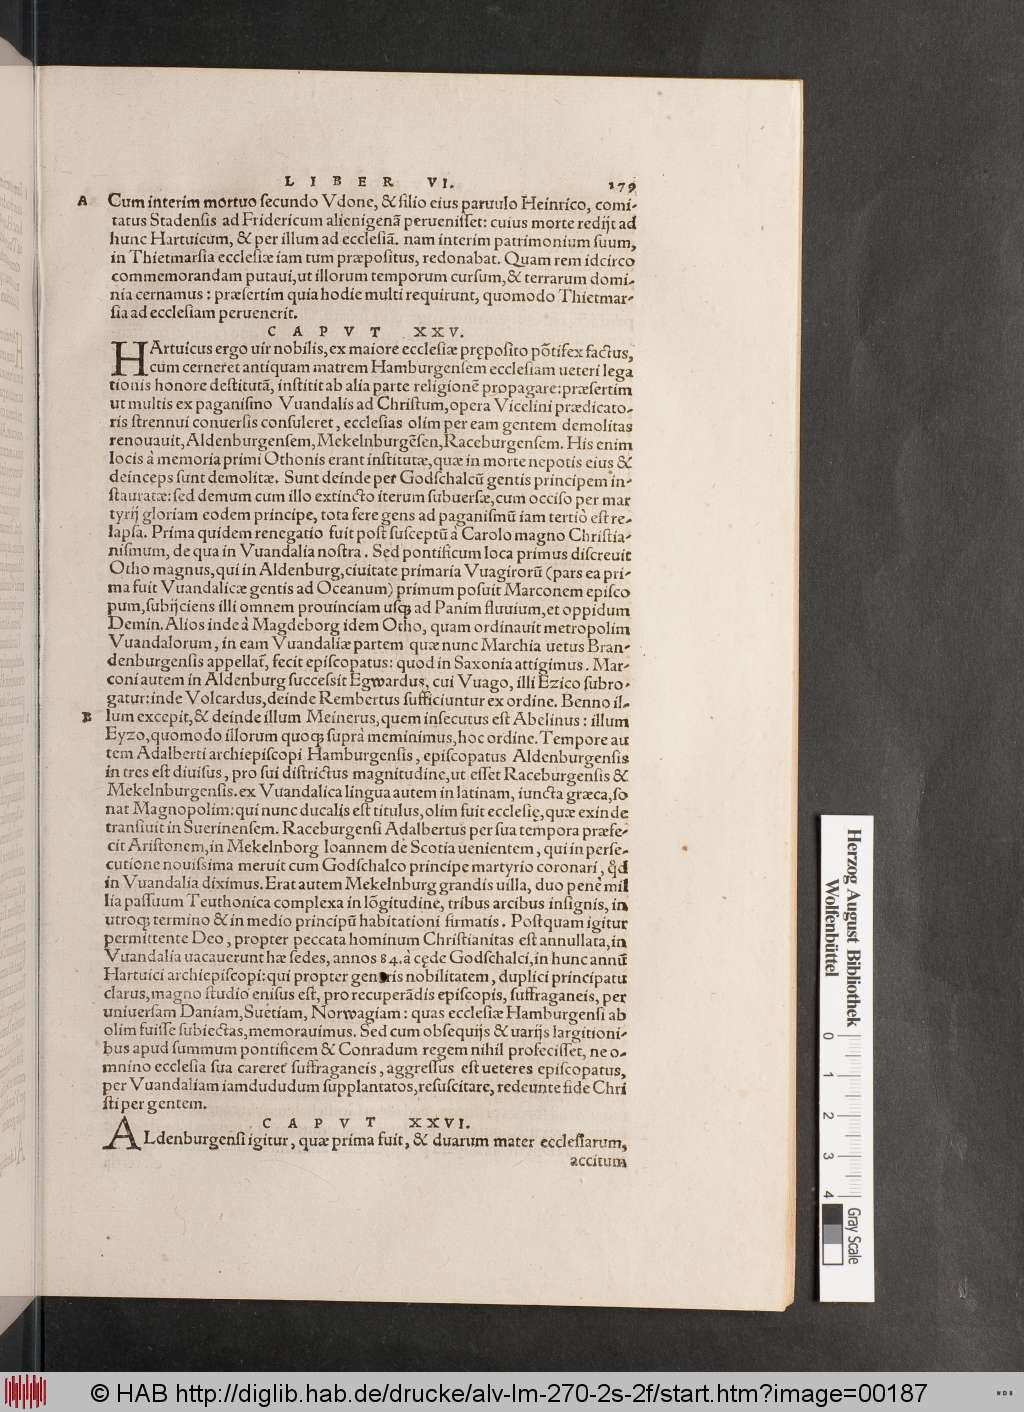 LIBER VI. 179
A Cum interim mortuo secundo Vdone, & filio eius paruulo Heinrico, comi-
tatus Stadensis ad Fridericum alienigenã peruenisset: cuius morte redijt ad
hunc Hartuicum, & per illum ad ecclesiã. nam interim patrimonium suum,
in Thietmarsia ecclesiæ iam tum præpositus, redonabat. Quam rem idcirco
commemorandam putaui, ut illorum temporum cursum, & terrarum domi-
nia cernamus: præsertim quia hodie multi requirunt, quomodo Thietmar-
sia ad ecclesiam peruenerit.
CAPVT XXV.
HArtuicus ergo uir nobilis, ex maiore ecclesiæ pręposito põtifex factus,
cum cerneret antiquam matrem Hamburgensem ecclesiam ueteri lega
tionis honore destitutã, institit ab alia parte religionẽ propagare: præsertim
ut multis ex paganismo Vuandalis ad Christum, opera Vicelini prædicato-
ris strennui conuersis consuleret, ecclesias olim per eam gentem demolitas
renouauit, Aldenburgensem, Mekelnburgẽsen, Raceburgensem. His enim
locis à memoria primi Othonis erant institutæ, quæ in morte nepotis eius &
deinceps sunt demolitæ. Sunt deinde per Godschalcũ gentis principem in-
stauratæ: sed demum cum illo extincto iterum subuersæ, cum occiso per mar
tyrij gloriam eodem principe, tota fere gens ad paganismũ iam tertiò est re-
lapsa. Prima quidem renegatio fuit post susceptũ à Carolo magno Christia-
nismum, de qua in Vuandalia nostra. Sed pontificum loca primus discreuit
Otho magnus, qui in Aldenburg, ciuitate primaria Vuagirorũ (pars ea pri-
ma fuit Vuandalicæ gentis ad Oceanum) primum posuit Marconem episco
pum, subijciens illi omnem prouinciam usq; ad Panim fluuium, et oppidum
Demin. Alios inde à Magdeborg idem Otho, quam ordinauit metropolim
Vuandalorum, in eam Vuandaliæ partem quæ nunc Marchia uetus Bran-
denburgensis appellat̃, fecit episcopatus: quod in Saxonia attigimus. Mar-
coni autem in Aldenburg successit Egwardus, cui Vuago, illi Ezico subro-
gatur: inde Volcardus, deinde Rembertus sufficiuntur ex ordine. Benno il-
B lum excepit, & deinde illum Meinerus, quem insecutus est Abelinus: illum
Eyzo, quomodo illorum quoq; suprà meminimus, hoc ordine. Tempore au
tem Adalberti archiepiscopi Hamburgensis, episcopatus Aldenburgensis
in tres est diuisus, pro sui districtus magnitudine, ut esset Raceburgensis &
Mekelnburgensis. ex Vuandalica lingua autem in latinam, iuncta græca, so
nat Magnopolim: qui nunc ducalis est titulus, olim fuit ecclesię, quæ exinde
transiuit in Suerinensem. Raceburgensi Adalbertus per sua tempora præfe-
cit Aristonem, in Mekelnborg Ioannem de Scotia uenientem, qui in perse-
cutione nouissima meruit cum Godschalco principe martyrio coronari, q̃d
in Vuandalia diximus. Erat autem Mekelnburg grandis uilla, duo penè mil
lia passuum Teuthonica complexa in lõgitudine, tribus arcibus insignis, in
utroq; termino & in medio principũ habitationi firmatis. Postquam igitur
permittente Deo, propter peccata hominum Christianitas est annullata, in
Vuandalia uacauerunt hæ sedes, annos 84. à cęde Godschalci, in hunc annũ
Hartuici archiepiscopi: qui propter generis nobilitatem, duplici principatu
clarus, magno studio enisus est, pro recuperãdis episcopis, suffraganeis, per
uniuersam Daniam, Suetiam, Norwagiam: quas ecclesiæ Hamburgensi ab
olim fuisse subiectas, memorauimus. Sed cum obsequijs & uarijs largitioni-
bus apud summum pontificem & Conradum regem nihil profecisset, ne o-
mnino ecclesia sua careret suffraganeis, aggressus est ueteres episcopatus,
per Vuandaliam iamdududum supplantatos, resuscitare, redeunte fide Chri
sti per gentem.
CAPVT XXVI.
ALdenburgensi igitur, quæ prima fuit, & duarum mater ecclesiarum,
accitum
Herzog August Bibliothek
Wolfenbüttel
0 1 2 3 4
Gray Scale
© HAB http://diglib.hab.de/drucke/alv-lm-270-2s-2f/start.htm?image=00187
WDB